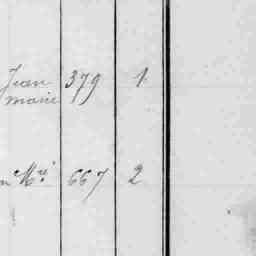 Jean 379 1
marie
n Mre 667 2